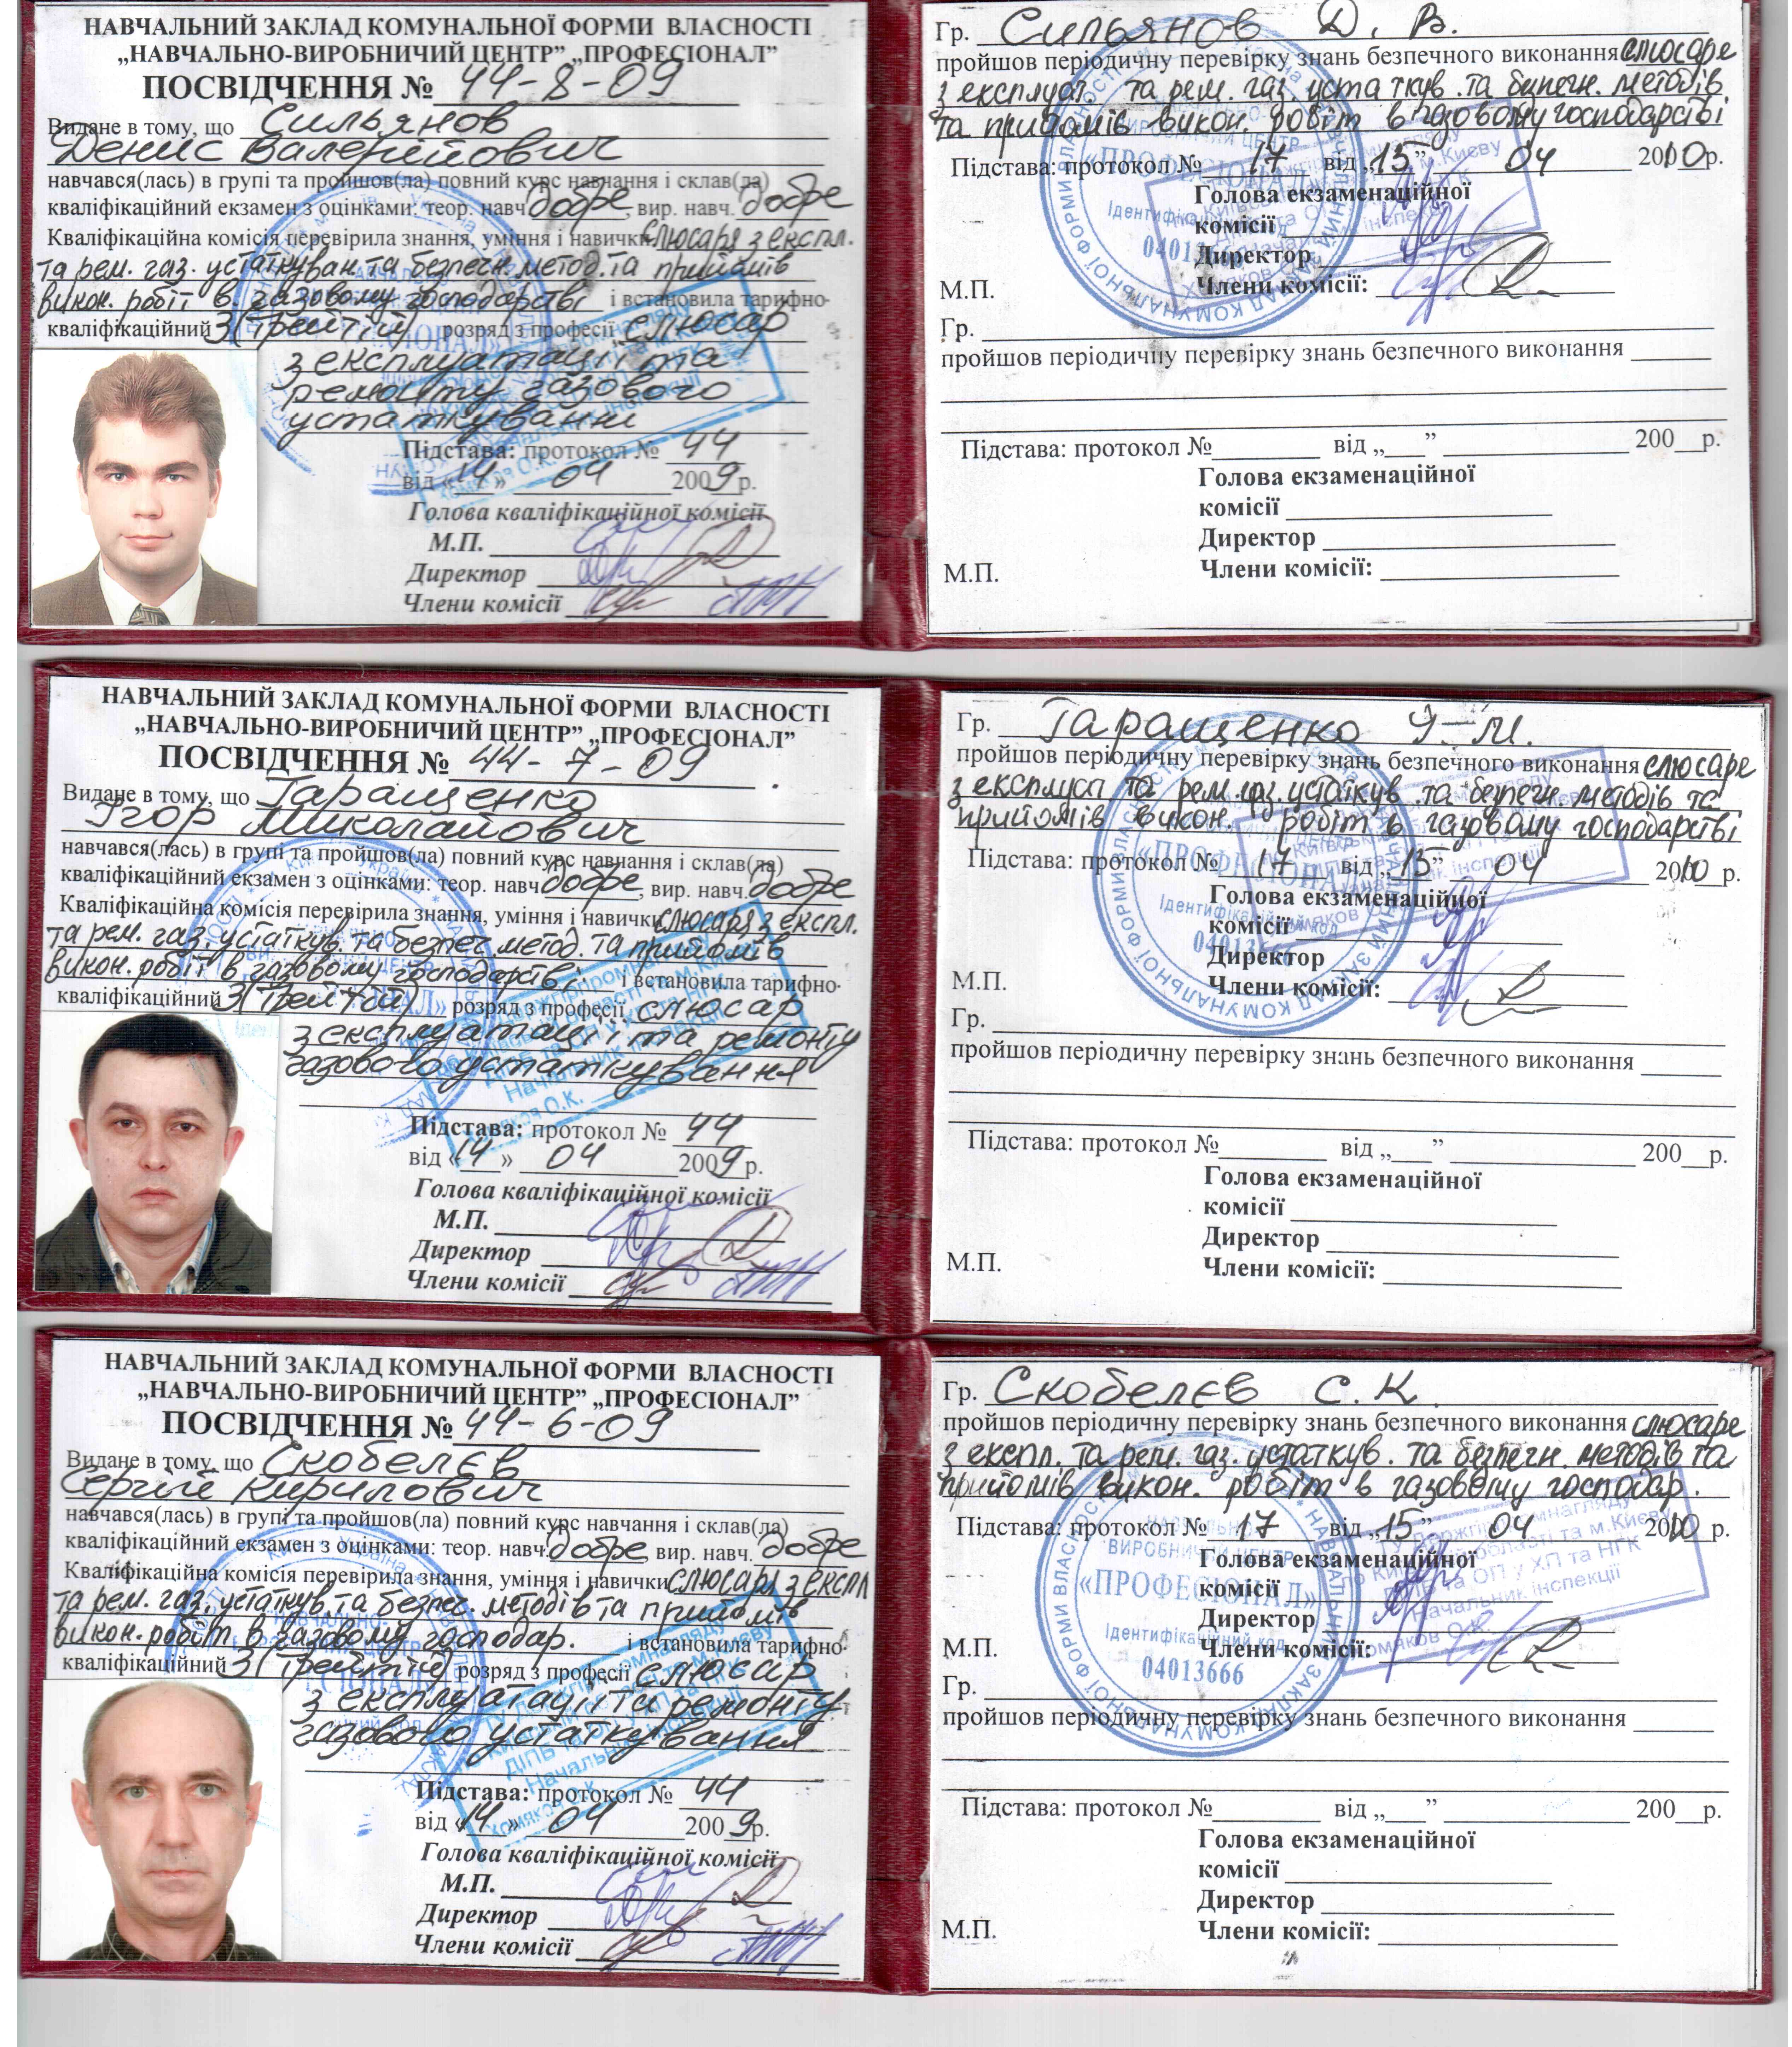 НАВЧАЛЬНИЙ ЗАКЛАД КОМУНАЛЬНОЇ ФОРМИ ВЛАСНОСТІ
„НАВЧАЛЬНО-ВИРОБНИЧИЙ ЦЕНТР” „ПРОФЕСІОНАЛ”
ПОСВІДЧЕННЯ № 44-8-09
Видане в тому, що Сильянов
Денис Валерійович
навчався(лась) в групі та пройшов(ла) повний курс навчання і склав(ла)
кваліфікаційний екзамен з оцінками: теор. навч. добре, вир. навч. добре
Кваліфікаційна комісія перевірила знання, уміння і навички слюсаря з експл.
та рем. газ. устаткуван. та безпечн. метод. та прийомів
викон. робіт в газовому господарстві і встановила тарифно-
кваліфікаційний 3(третій) розряд з професії слюсар
з експлуатації та
ремонту газового
устаткування
Підстава: протокол № 44
від «14» 04 2009р.
Голова кваліфікаційної комісії
М.П.
Директор
Члени комісії
Гр. Сильянов Д. В.
пройшов періодичну перевірку знань безпечного виконання слюсаре
з експлуат. та рем. газ. устаткув. та безпечн. методів
та прийомів викон. робіт в газовому господарстві
Підстава: протокол № 17 від „15” 04 2010р.
Голова екзаменаційної
комісії
Директор
М.П. Члени комісії:
Гр.
пройшов періодичну перевірку знань безпечного виконання
Підстава: протокол № від „ ” 200 р.
Голова екзаменаційної
комісії
Директор
М.П. Члени комісії:
НАВЧАЛЬНИЙ ЗАКЛАД КОМУНАЛЬНОЇ ФОРМИ ВЛАСНОСТІ
„НАВЧАЛЬНО-ВИРОБНИЧИЙ ЦЕНТР” „ПРОФЕСІОНАЛ”
ПОСВІДЧЕННЯ № 44-7-09
Видане в тому, що Таращенко
Ігор Миколайович
навчався(лась) в групі та пройшов(ла) повний курс навчання і склав(ла)
кваліфікаційний екзамен з оцінками: теор. навч. добре, вир. навч. добре
Кваліфікаційна комісія перевірила знання, уміння і навички слюсаря з експл.
та рем. газ. устаткув. та безпеч. метод. та прийомів
викон. робіт в газовому господарстві і встановила тарифно-
кваліфікаційний 3(третій) розряд з професії слюсар
з експлуатації та ремонту
газового устаткування
Підстава: протокол № 44
від «14» 04 2009р.
Голова кваліфікаційної комісії
М.П.
Директор
Члени комісії
Гр. Таращенко І. М.
пройшов періодичну перевірку знань безпечного виконання слюсаре
з експлуат та рем. газ. устаткув. та безпечн. методів та
прийомів викон. робіт в газовому господарстві
Підстава: протокол № 17 від „15” 04 2010 р.
Голова екзаменаційної
комісії
Директор
М.П. Члени комісії:
Гр.
пройшов періодичну перевірку знань безпечного виконання
Підстава: протокол № від „ ” 200 р.
Голова екзаменаційної
комісії
Директор
М.П. Члени комісії:
НАВЧАЛЬНИЙ ЗАКЛАД КОМУНАЛЬНОЇ ФОРМИ ВЛАСНОСТІ
„НАВЧАЛЬНО-ВИРОБНИЧИЙ ЦЕНТР” „ПРОФЕСІОНАЛ”
ПОСВІДЧЕННЯ № 44-6-09
Видане в тому, що Скобелєв
Сергій Кирилович
навчався(лась) в групі та пройшов(ла) повний курс навчання і склав(ла)
кваліфікаційний екзамен з оцінками: теор. навч. добре, вир. навч. добре
Кваліфікаційна комісія перевірила знання, уміння і навички слюсаря з експл
та рем. газ. устаткув. та безпеч. методів та прийомів
викон. робіт. в газовому господар. і встановила тарифно-
кваліфікаційний 3(третій) розряд з професії слюсар
з експлуатації та ремонту
газового устаткування
Підстава: протокол № 44
від «14» 04 2009р.
Голова кваліфікаційної комісії
М.П.
Директор
Члени комісії
Гр. Скобелєв С. К.
пройшов періодичну перевірку знань безпечного виконання слюсаре
з експл. та рем. газ. устаткув. та безпечн. методів та
прийомів викон. робіт в газовому господар.
Підстава: протокол № 17 від „15” 04 2010 р.
Голова екзаменаційної
комісії
Директор
М.П. Члени комісії:
НАВЧАЛЬНО-
ВИРОБНИЧИЙ ЦЕНТР
«ПРОФЕСІОНАЛ»
Ідентифікаційний код
04013666
Гр.
пройшов періодичну перевірку знань безпечного виконання
Підстава: протокол № від „ ” 200 р.
Голова екзаменаційної
комісії
Директор
М.П. Члени комісії: